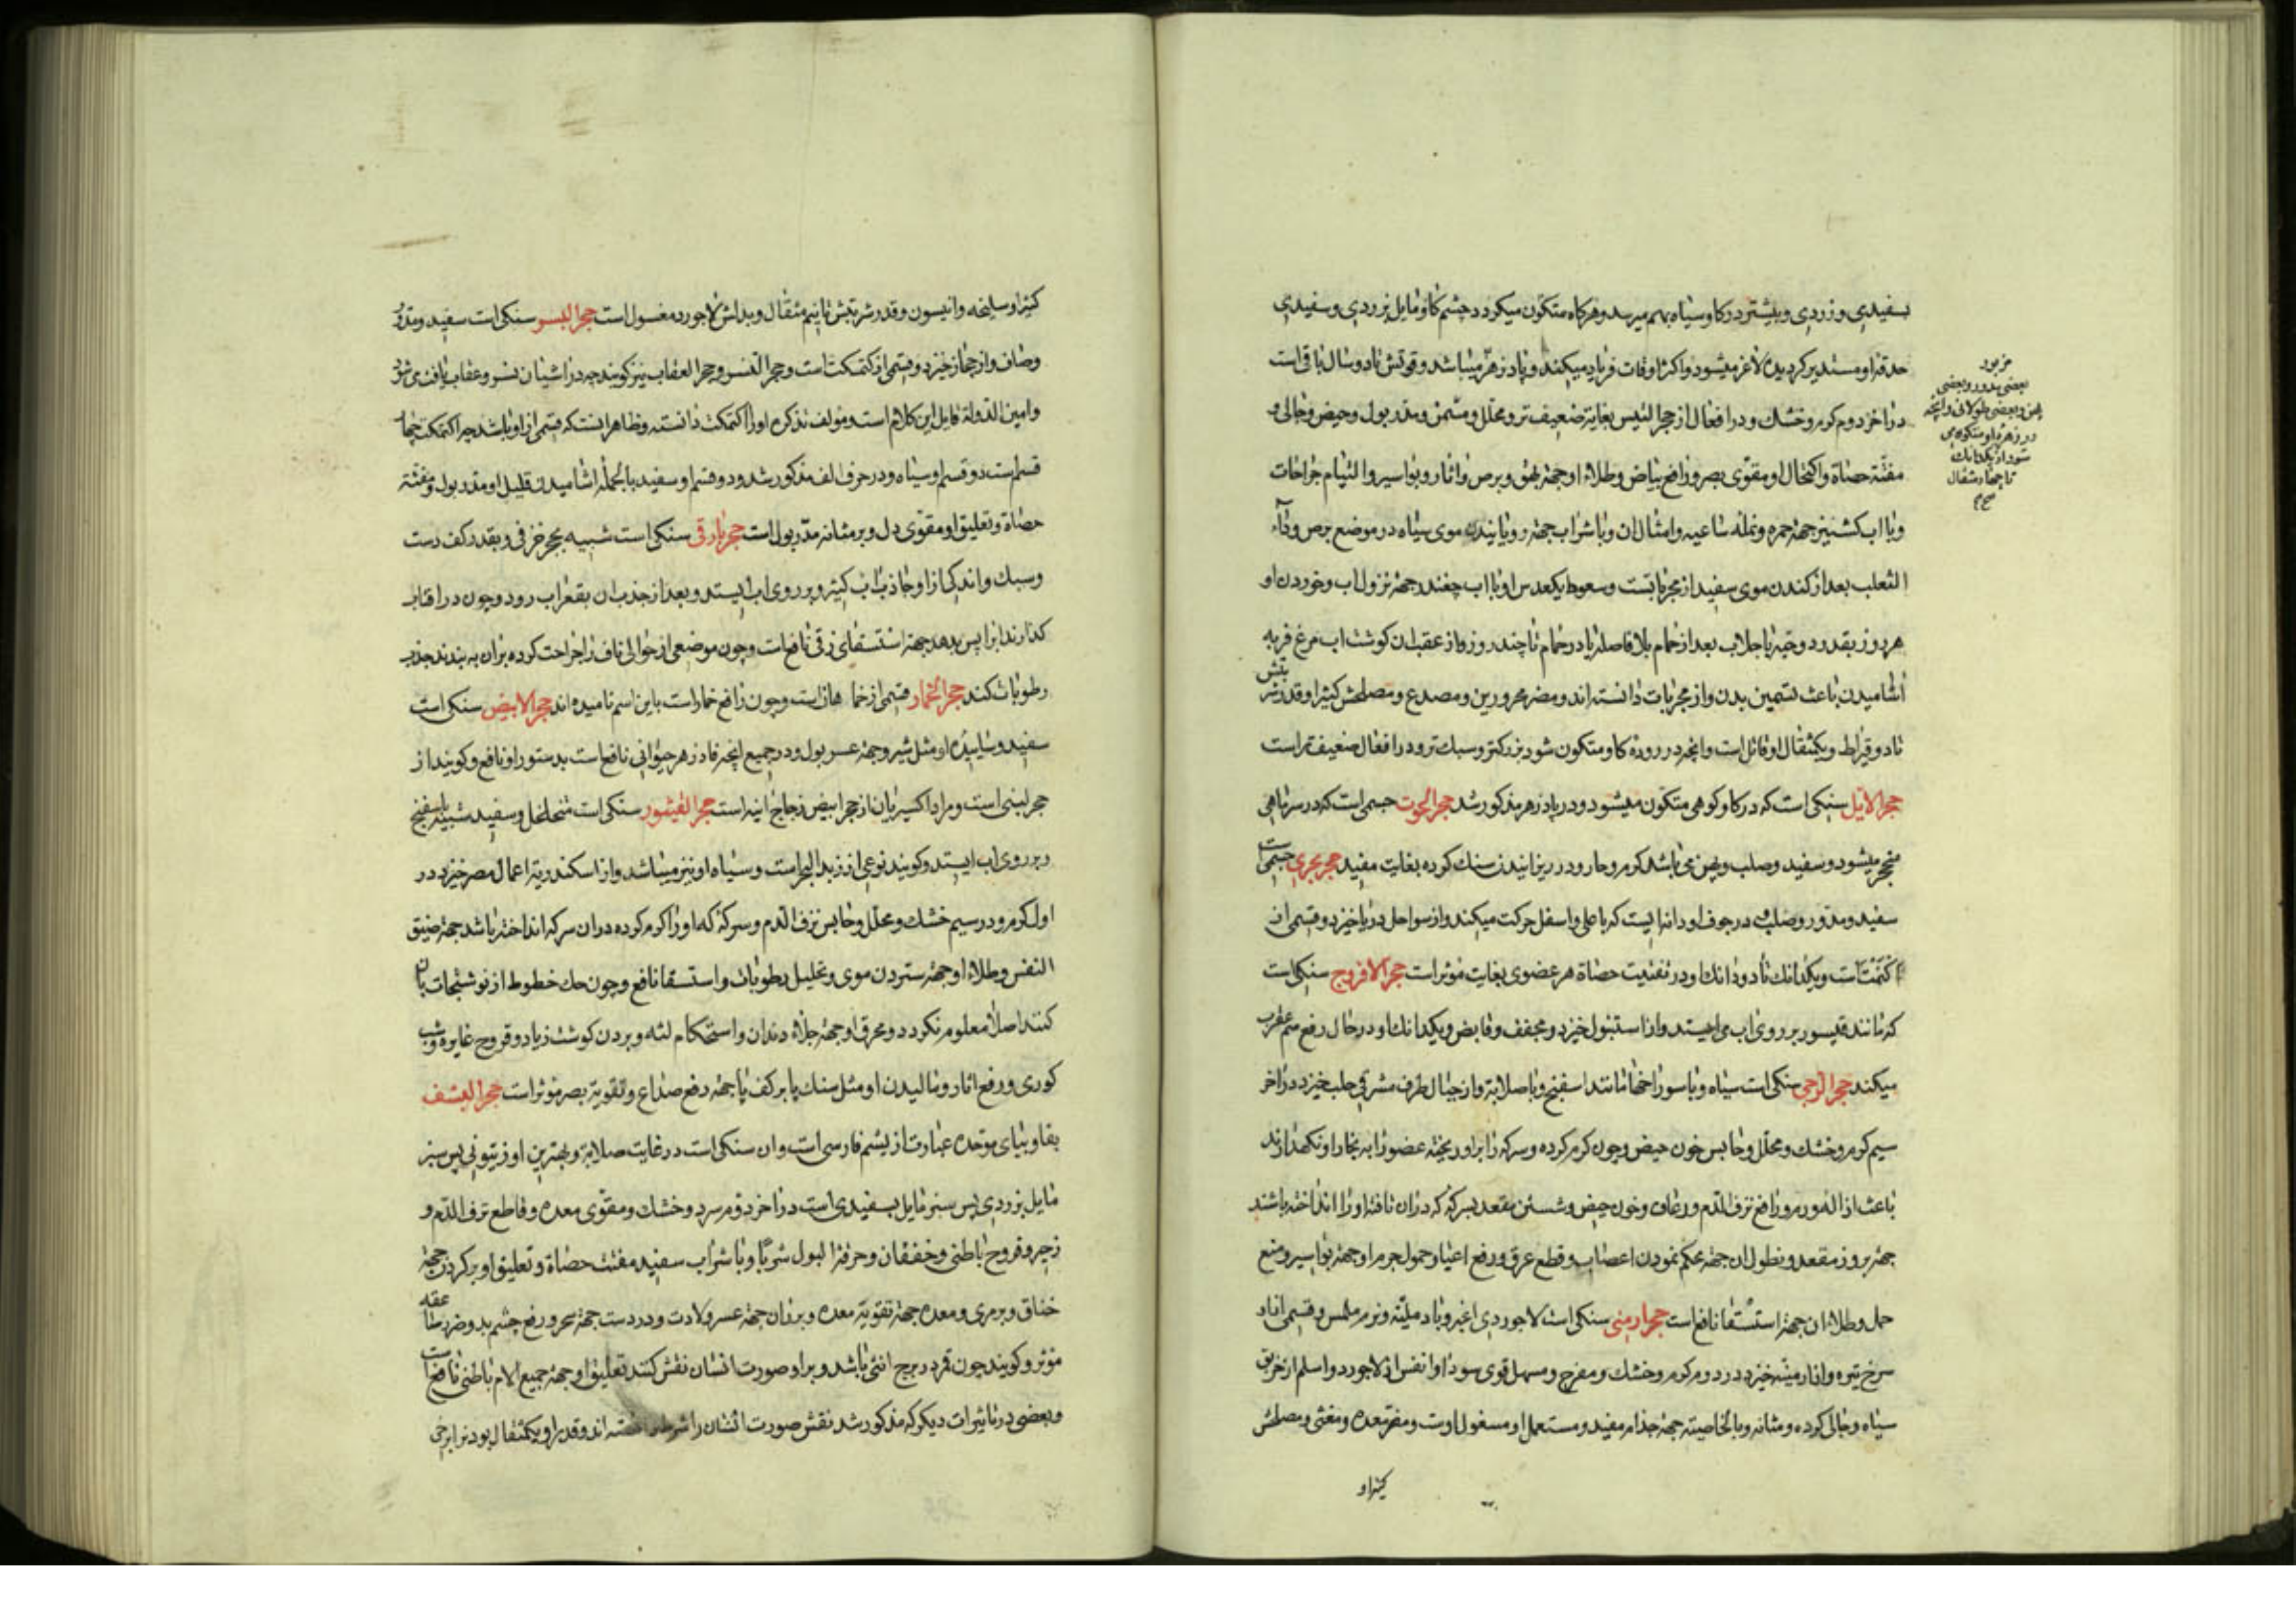 بسفیدی و زردی و بیشتر در کاو سیاه بهم میرسد و هرکاه متکون میکردد چشم کاو مایل بزردی و سفیدی
حدقه او مستدیر کردیده لاغر میشود و اکثر اوقات فریاد میکند و پادزهر میباشد و قوتش تا دو سال باقی است
در اخر دوم کرم و خشک و در افعال از حجر التیس بغایة ضعیف تر و محلل و مسمن و مدر بول و حیض و جالی و
مفتة حصاة و اکتحال او مقوی بصر و رافع بیاض و طلاء او جهة بهق و برص و اثار و بواسیر و التیام جراحات
و با اب کشنیز جهة حمره و نمله ساعیه و امثال ان و با شراب جهة رویانیدن موی سیاه در موضع برص و داء
الثعلب بعد از کندن موی سفید از مجرباتست و سعوط یکعدس او با اب چغندر جهة نزول اب و خوردن او
هر روز بقدر دو حبه با جلاب بعد از حمام بلا فاصله یا در حمام تا چند روز و از عقب ان کوشت اب مرغ فربه
اشامیدن باعث تسمین بدن و از مجربات دانسته اند و مضر محرورین و مصدع و مصلحش کثیرا و قدر شربتش
تا دو قیراط و یکمثقال او قاتل است و انچه در روده کاو متکون شود بزرکتر و سبک تر و در افعال ضعیف تر است
حجر الایل سنکی است که در کاو کوهی متکون میشود و در پادزهر مذکور شد حجر الحوت جسمی است که در سر ماهی
متحجر میشود و سفید و صلب و پهن می باشد کرم و حار و در ریزانیدن سنک کرده بغایت مفید حجر بحری جسمی است
سفید و مدور و صلب و در جوف او دانه ایست که باعلی و اسفل حرکت میکند و از سواحل دریا خیزد و قسمی از
اکتمکت است و یکدانک تا دو دانک او در تفتیت حصاة هر عضوی بغایت موثر است حجر الافروج سنکی است
که مانند قیسور بر روی اب می ایستد و از استنبول خیزد و مجفف و قابض و یکدانک او در حال رفع سم عقرب
میکند حجر الرحی سنکی است سیاه و با سوراخها مانند اسفنج و با صلابة و از جبال طرف مشرقی حلب خیزد در اخر
سیم کرم و خشک و محلل و حابس خون حیض و چون کرم کرده و سرکه را بر او ریخته عضو را به بخار او نکهدارند
باعث ازاله ورم و رافع نزف الدم و رعاف و خون حیض و شستن مقعد بسرکه که در ان تافته او را انداخته باشند
جهة بروز مقعد و نطول ان جهة محکم نمودن اعصاب و قطع عرق و رفع اعیا و حمول جرم او جهة بواسیر و منع
حمل و طلاء ان جهة استسقا نافع است حجر ارمنی سنکی است لاجوردی اغبر و با رملیة و نرم ملمس و قسمی از او
سرخ تیره و از ارمنیه خیزد در دوم کرم و خشک و مفرح و مسهل قوی سودا و انفس از لاجورد و اسلم از خربق
سیاه و جالی کرده و مثانه و بالخاصیته جهة جذام مفید و مستعمل او مغسول اوست و مضر معده و مغثی و مصلحش
کثیرا و
مزبور
بعضی مدور و بعضی
پهن و بعضی طولانی و انچه
در زهره او متکون می
شود از یکدانک
تا چهار مثقال
صح
کثیرا و سلیخه و انیسون و قدر شربتش تا نیم مثقال و بدلش لاجورد مغسول است حجر النسر سنکی است سفید و مدور
و صاف و از حجاز خیزد و قسمی از کتمکت است و حجر النسر و حجر العقاب نیز کویند چه در اشیان نسر و عقاب یافت می شود
و امین الدوله قایل این کلام است و مولف تذکره او را اکتمکت دانسته و ظاهر انست که قسمی از او باشد چه اکتمکت چهار
قسم است دو قسم او سیاه و در حرف الف مذکور شد و دو قسم او سفید بالجمله اشامیدن قلیل او مدر بول و مفتته
حصاة و تعلیق او مقوی دل و بر مثانه مدر بول است حجر بارقی سنکی است شبیه بحجر خزفی و بقدر کف دست
و سبک و اندکی از او جاذب اب کثیر و بر روی اب ایستد و بعد از جذب ان بقعر اب رود و چون در افتاب
کذارند اب را پس بدهد جهة استسقای زقی نافع است و چون موضعی از حوالی ناف را جراحت کرده بر ان به بندند جذب
رطوبات کند حجر الخمار قسمی از خماهان است و چون رافع خمار است باین اسم نامیده اند حجر الابیض سنکی است
سفید و ساییده او مثل شیر و جهة عسر بول و در جمیع انچه فادزهر حیوانی نافع است بدستور او نافع و کویند از
حجر لبنی است و مراد اکسیریان از حجر ابیض زجاج اینه است حجر القیشور سنکی است متخلخل و سفید شبیه باسفنج
و بر روی اب ایستد و کویند نوعی از زبد البحر است و سیاه او نیز میباشد و از اسکندریة اعمال مصر خیزد در
اول کرم و در سیم خشک و محلل و حابس نزف الدم و سرکه که او را کرم کرده در ان سرکه انداخته باشد جهة ضیق
النفس و طلاء او جهة ستردن موی و تحلیل رطوبات و استسقا نافع و چون حک خطوط از نوشتجات بان
کنند اصلا معلوم نکردد و محرق او جهة جلاء دندان و استحکام لثه و بردن کوشت زیاد و قروح غایره و شب
کوری و رفع اثار و مالیدن او مثل سنک پا بر کف پا جهة رفع صداع و تقویة بصر موثر است حجر الیشف
بفا و بیای موحده عبارت از یشم فارسی است و ان سنکی است در غایت صلابة و بهترین او زیتونی پس سبز
مایل بزردی پس سبز مایل بسفیدی است در اخر دوم سرد و خشک و مقوی معده و قاطع نزف الدم و
زحیر و قروح باطنی و خفقان و حرقة البول شربا و با شراب سفید مفتت حصاة و تعلیق او بر کردن جهة
خناق و بر مری و معده جهة تقویة معده و بر ران جهة عسر ولادت و در دست جهة سحر و رفع چشم بد و ضرر صاعقه
موثر و کویند چون قمر در برج انثی باشد و بر او صورت انسان نقش کنند تعلیق او جهة جمیع الام باطنی نافع است
و بعضی در تاثیرات دیکر که مذکور شد نقش صورت انسان را شرط دانسته اند و قدر او یکمثقال بود نزا